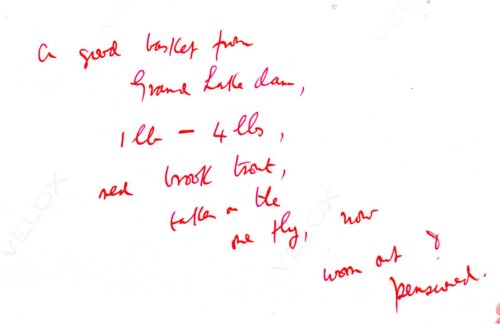 a good basket from
Grand Lake dam,
1 lb – 4 lbs,
red brook trout,
taken on the
one fly, now
worn out &
pensioned.
VELOX
VELOX
VELOX